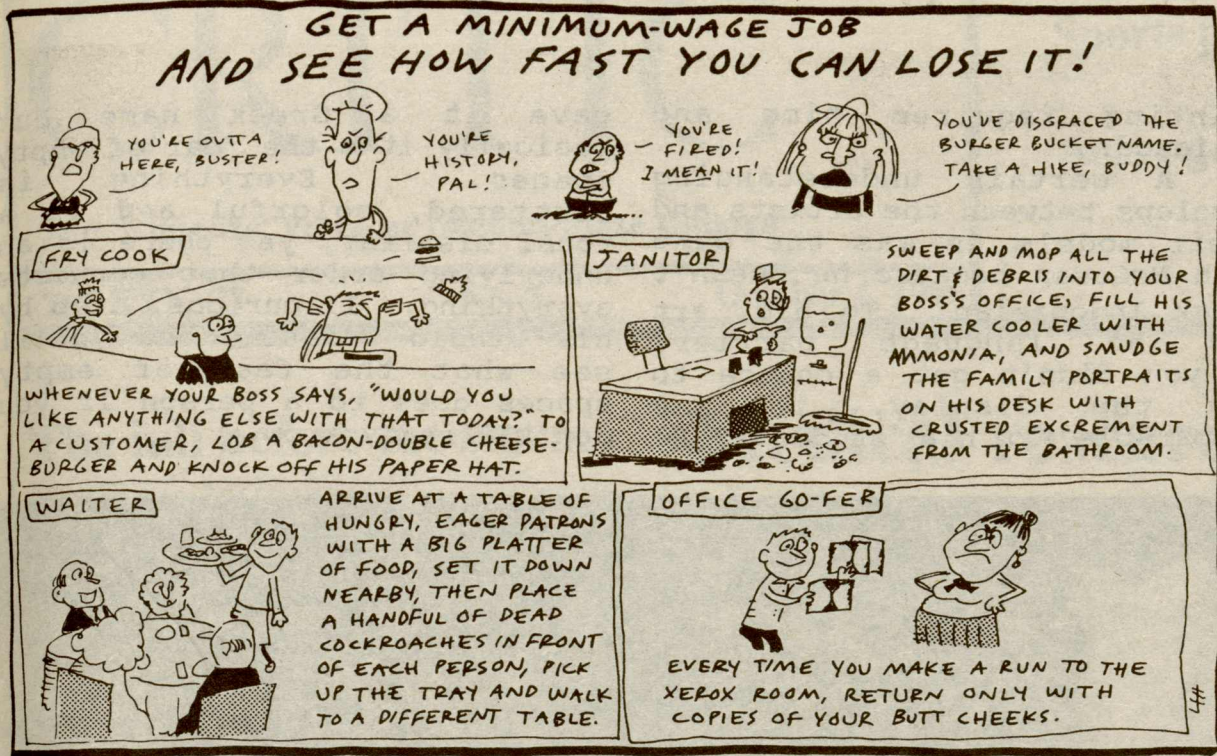 GET A MINIMUM-WAGE JOB
AND SEE HOW FAST YOU CAN LOSE IT!
YOU'RE OUTTA
HERE, BUSTER!
YOU'RE
HISTORY,
PAL!
YOU'RE
FIRED!
I MEAN IT!
YOU'VE DISGRACED THE
BURGER BUCKET NAME,
TAKE A HIKE, BUDDY!
FRY COOK
WHENEVER YOUR BOSS SAYS, "WOULD YOU
LIKE ANYTHING ELSE WITH THAT TODAY?" TO
A CUSTOMER, LOB A BACON-DOUBLE CHEESE-
BURGER AND KNOCK OFF HIS PAPER HAT.
JANITOR
SWEEP AND MOP ALL THE
DIRT & DEBRIS INTO YOUR
BOSS'S OFFICE, FILL HIS
WATER COOLER WITH
AMMONIA, AND SMUDGE
THE FAMILY PORTRAITS
ON HIS DESK WITH
CRUSTED EXCREMENT
FROM THE BATHROOM.
WAITER
ARRIVE AT A TABLE OF
HUNGRY, EAGER PATRONS
WITH A BIG PLATTER
OF FOOD, SET IT DOWN
NEARBY, THEN PLACE
A HANDFUL OF DEAD
COCKROACHES IN FRONT
OF EACH PERSON, PICK
UP THE TRAY AND WALK
TO A DIFFERENT TABLE.
OFFICE GO-FER
EVERY TIME YOU MAKE A RUN TO THE
XEROX ROOM, RETURN ONLY WITH
COPIES OF YOUR BUTT CHEEKS.